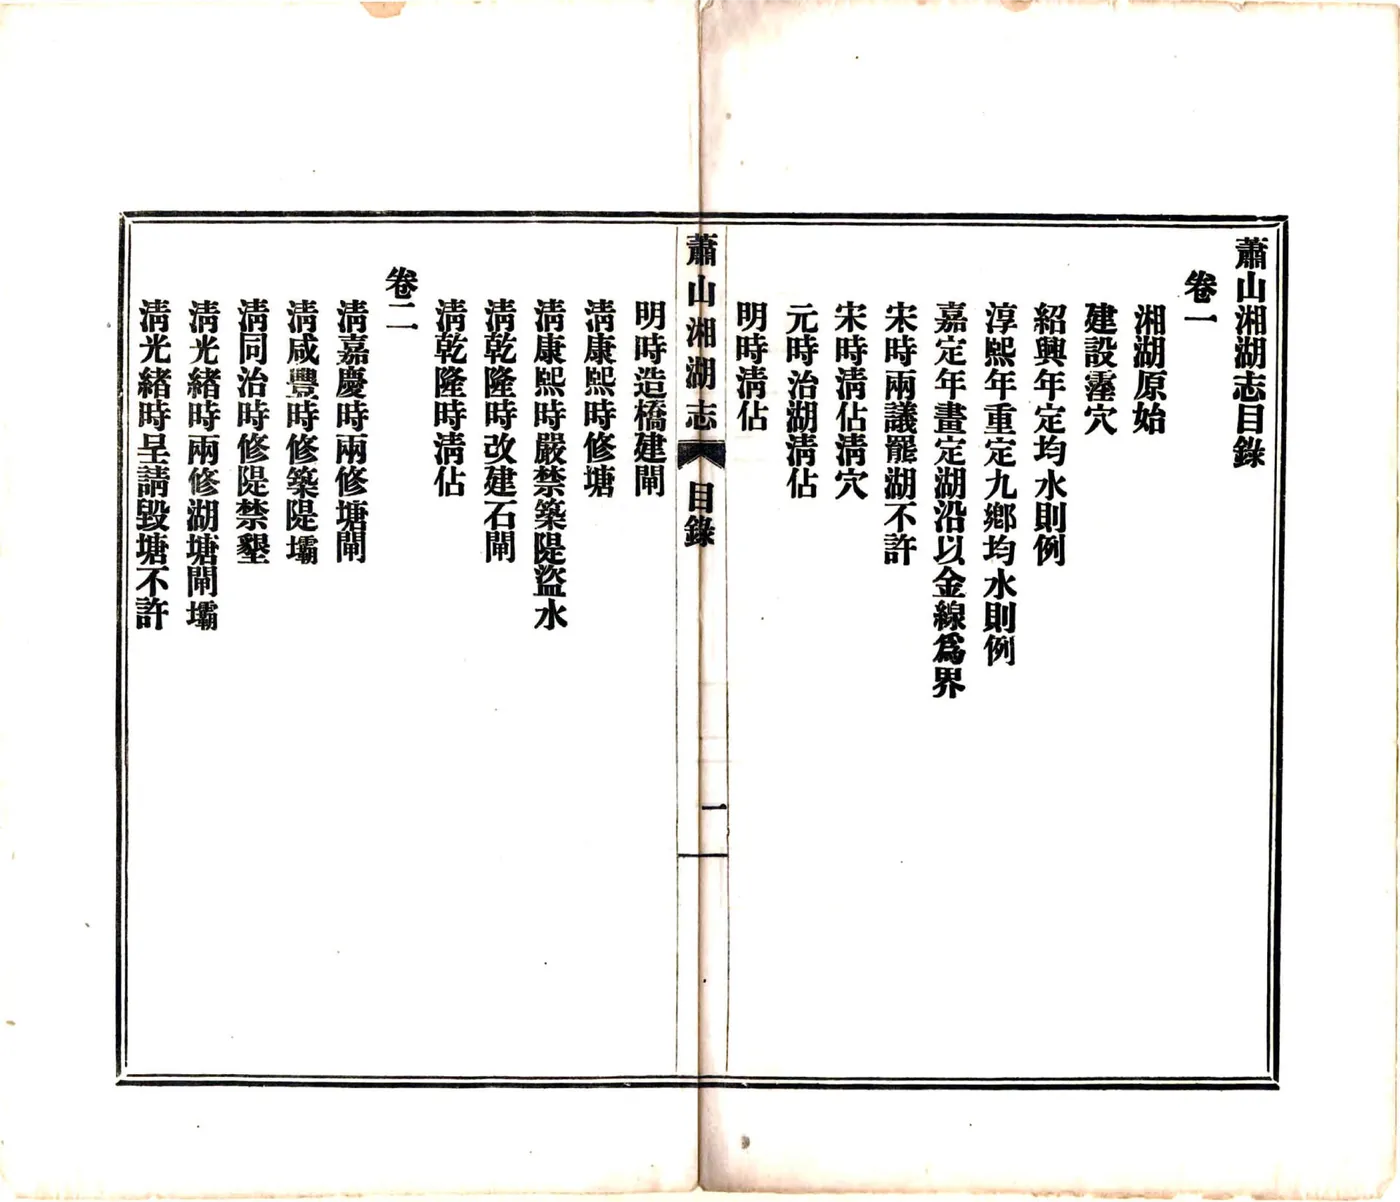 蕭山湘湖志目錄
卷一
湘湖原始
建設霪穴
紹興年定均水則例
淳熙年重定九鄉均水則例
嘉定年畫定湖沿以金線爲界
宋時兩議罷湖不許
宋時清佔清穴
元時治湖清佔
明時清佔
蕭山湘湖志
目錄
一
明時造橋建閘
清康熙時修塘
清康熙時嚴禁築隄盜水
清乾隆時改建石閘
清乾隆時清佔
卷二
清嘉慶時兩修塘閘
清咸豐時修築隄壩
清同治時修隄禁墾
清光緒時兩修湖塘閘壩
清光緒時呈請毀塘不許